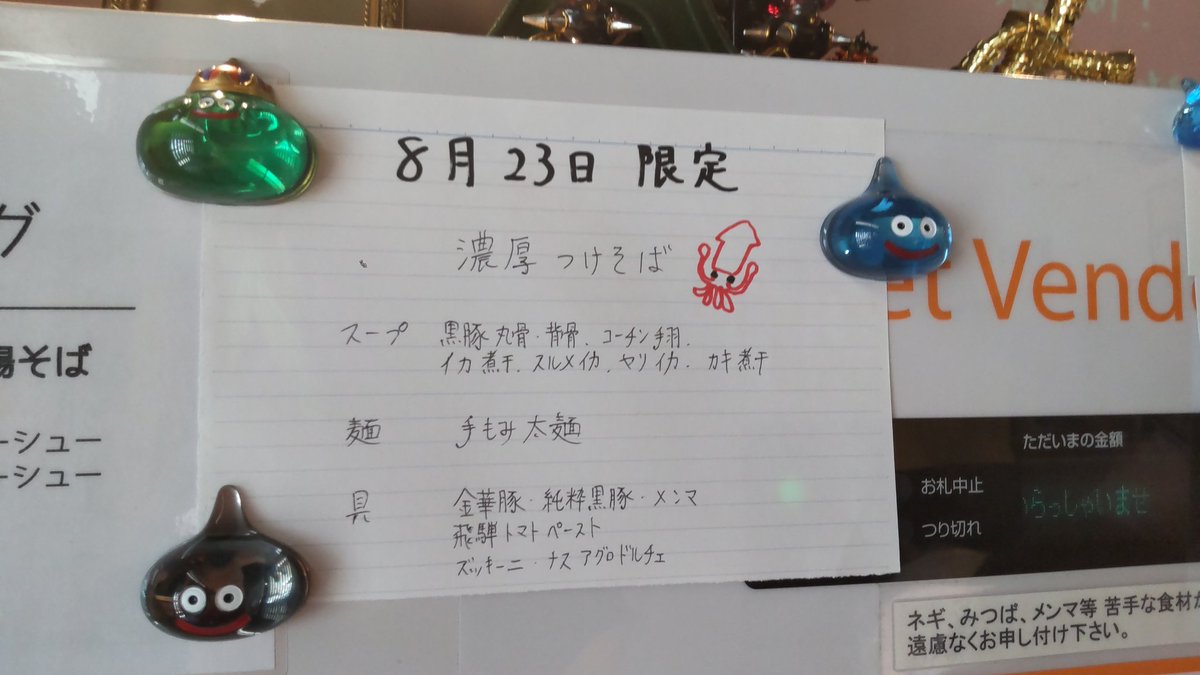 8月23日 限定
濃厚 つけそば
スープ 黒豚 丸骨・背骨、コーチン手羽、
イカ煮干、スルメイカ、ヤリイカ、カキ煮干
麺 手もみ太麺
具 金華豚・純粋黒豚・メンマ
飛騨トマトペースト
ズッキーニ・ナス アグロドルチェ
グ
湯そば
ーシュー
ーシュー
et Vende
ただいまの金額
お札中止
つり切れ
いらっしゃいませ
ネギ、みつば、メンマ等 苦手な食材が
遠慮なくお申し付け下さい。